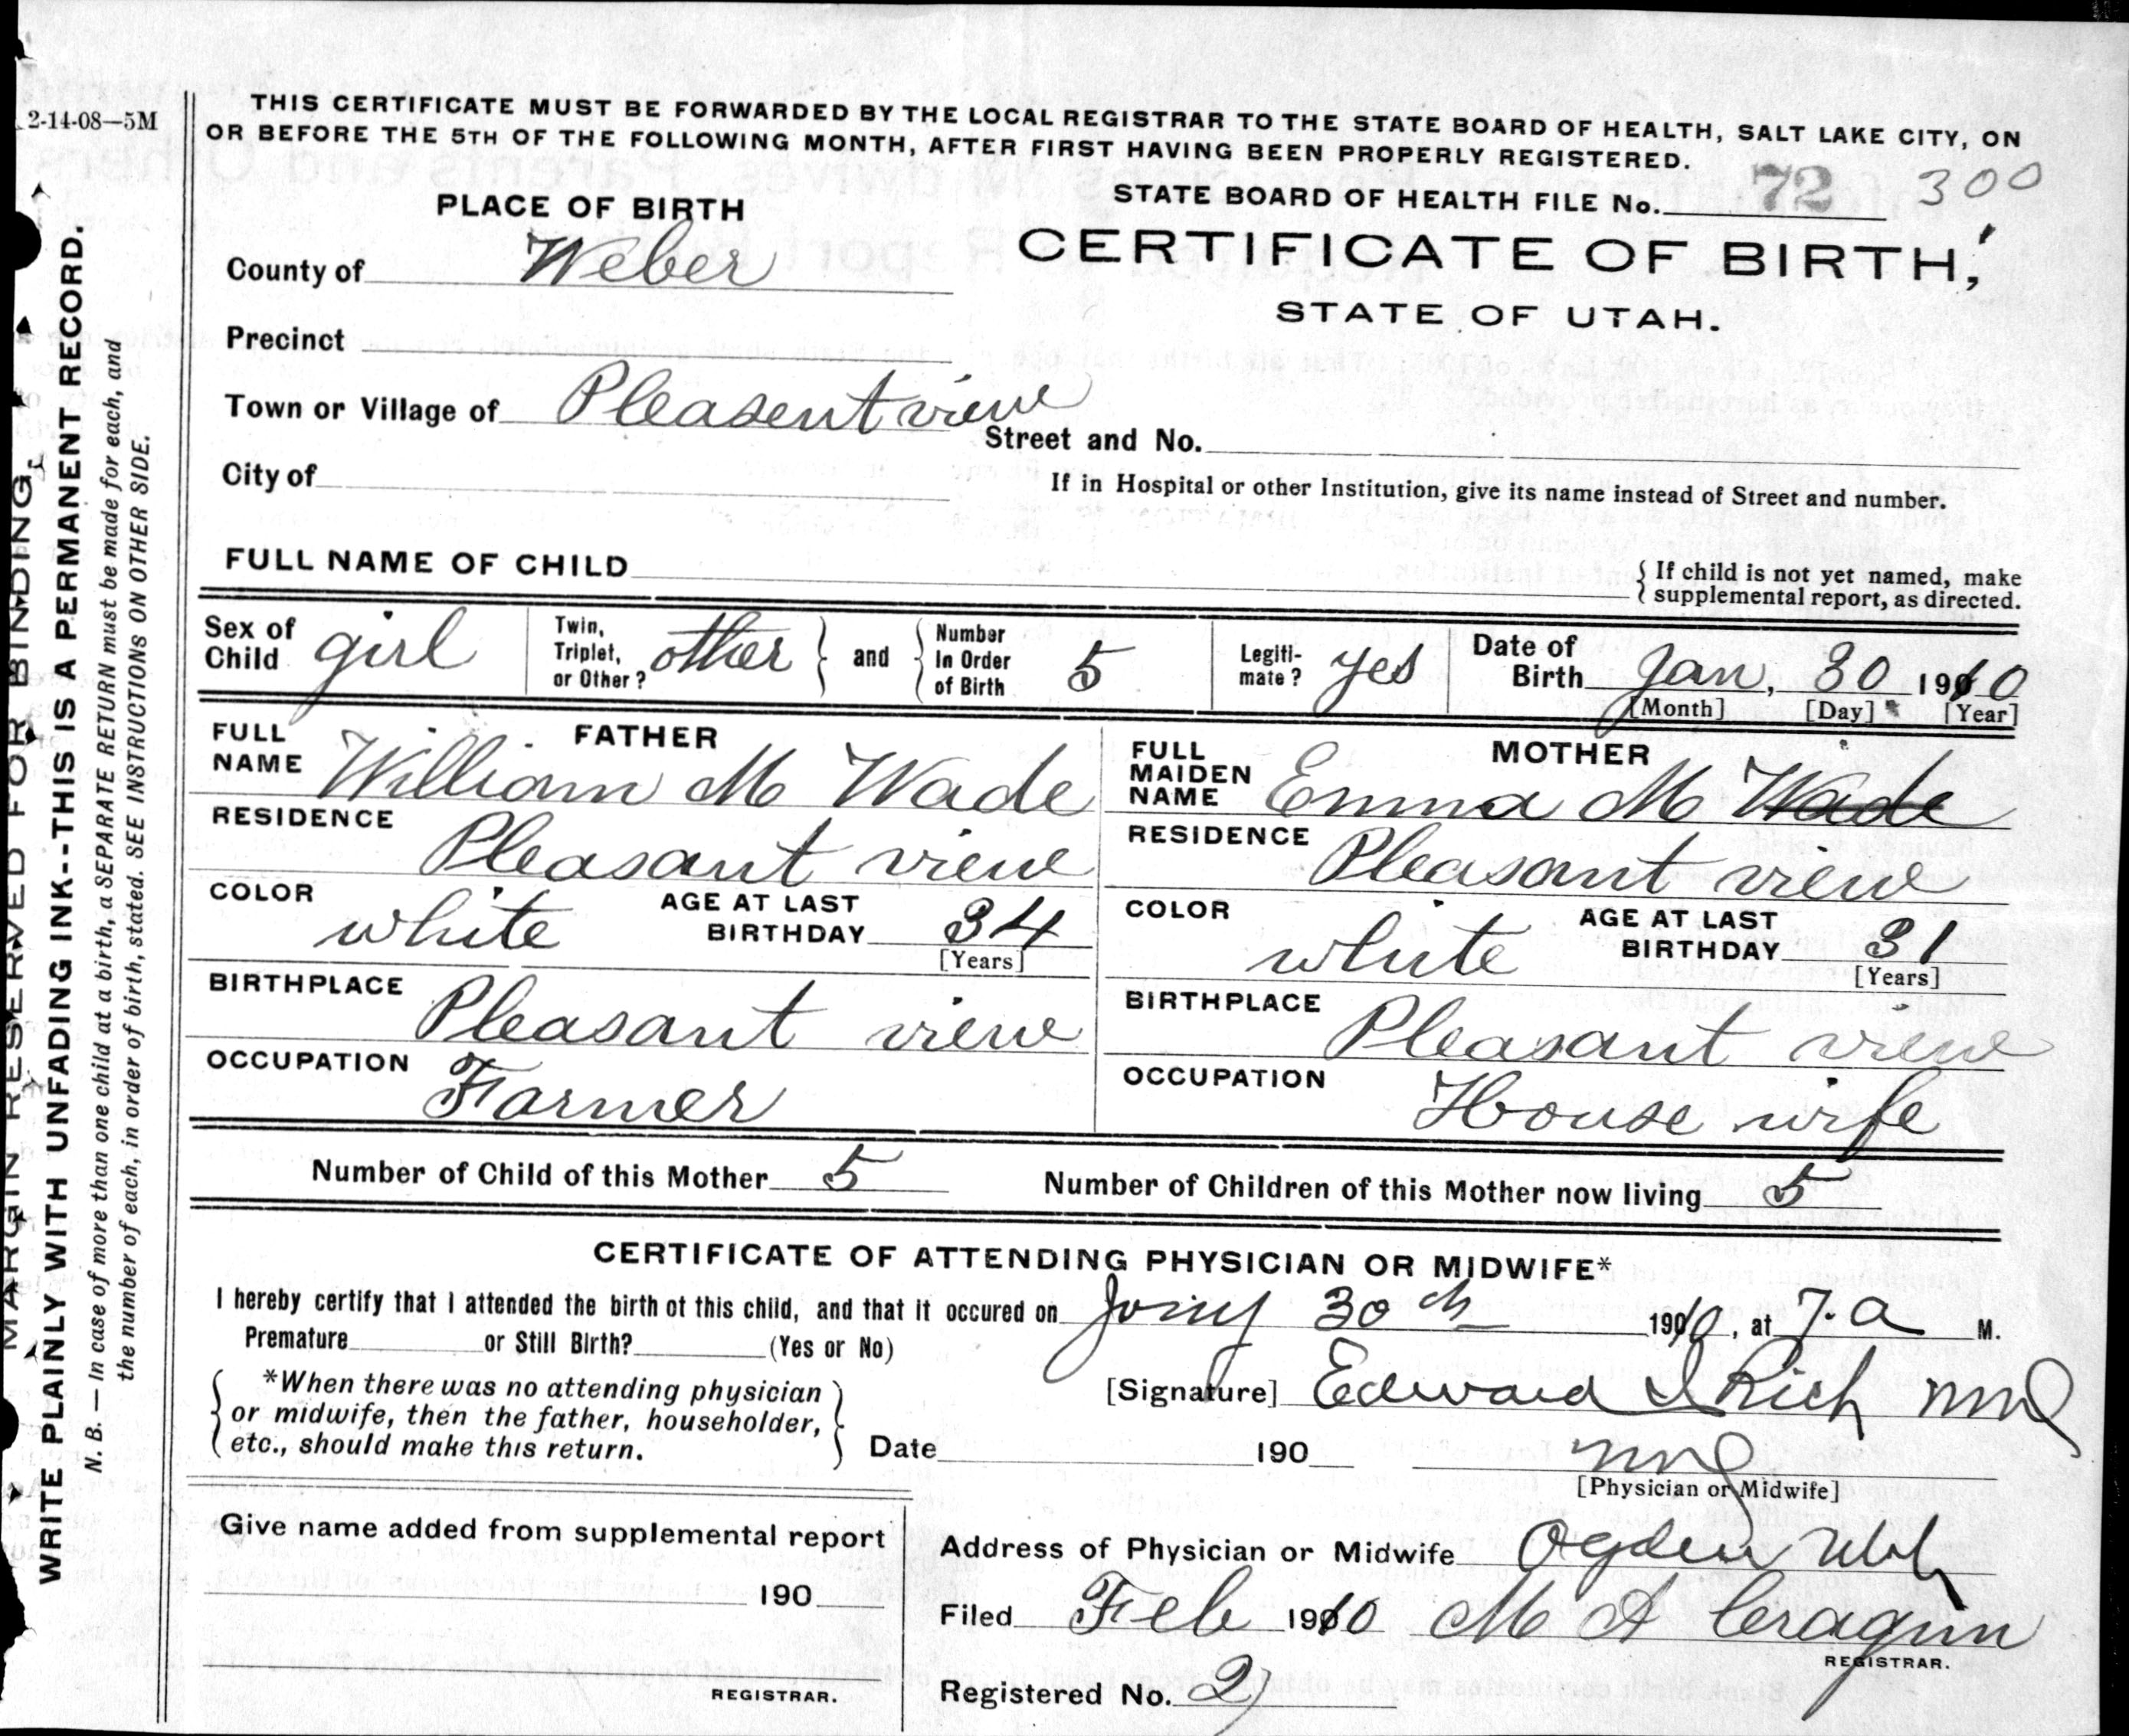 2-14-08—5M
THIS CERTIFICATE MUST BE FORWARDED BY THE LOCAL REGISTRAR TO THE STATE BOARD OF HEALTH, SALT LAKE CITY, ON
OR BEFORE THE 5TH OF THE FOLLOWING MONTH, AFTER FIRST HAVING BEEN PROPERLY REGISTERED.
STATE BOARD OF HEALTH FILE No. 72 300
PLACE OF BIRTH
CERTIFICATE OF BIRTH,
STATE OF UTAH.
County of Weber
Precinct
Town or Village of Pleasent view
Street and No.
City of
If in Hospital or other Institution, give its name instead of Street and number.
FULL NAME OF CHILD
{ If child is not yet named, make
supplemental report, as directed.
Sex of Child girl
Twin, Triplet, or Other? other } and { Number In Order of Birth 5
Legiti-mate? yes
Date of Birth Jan, 30 1910
[Month] [Day] [Year]
FATHER
FULL NAME William M Wade
RESIDENCE Pleasant view
COLOR white AGE AT LAST BIRTHDAY 34
[Years]
BIRTHPLACE Pleasant view
OCCUPATION Farmer
MOTHER
FULL MAIDEN NAME Emma M Wade
RESIDENCE Pleasant view
COLOR white AGE AT LAST BIRTHDAY 31
[Years]
BIRTHPLACE Pleasant view
OCCUPATION House wife
Number of Child of this Mother 5 Number of Children of this Mother now living 5
CERTIFICATE OF ATTENDING PHYSICIAN OR MIDWIFE*
I hereby certify that I attended the birth of this child, and that it occured on 30th 1910, at 7. a M.
Premature or Still Birth? (Yes or No)
{ *When there was no attending physician
or midwife, then the father, householder,
etc., should make this return. }
[Signature] Edward I Rich MD
Date 190
MD
[Physician or Midwife]
Give name added from supplemental report
190
REGISTRAR.
Address of Physician or Midwife Ogden Utah
Filed Feb 1910 M A Cragun
REGISTRAR.
Registered No. 2
MARGIN RESERVED FOR BINDING.
WRITE PLAINLY WITH UNFADING INK--THIS IS A PERMANENT RECORD.
N. B. — In case of more than one child at a birth, a SEPARATE RETURN must be made for each, and
the number of each, in order of birth, stated. SEE INSTRUCTIONS ON OTHER SIDE.